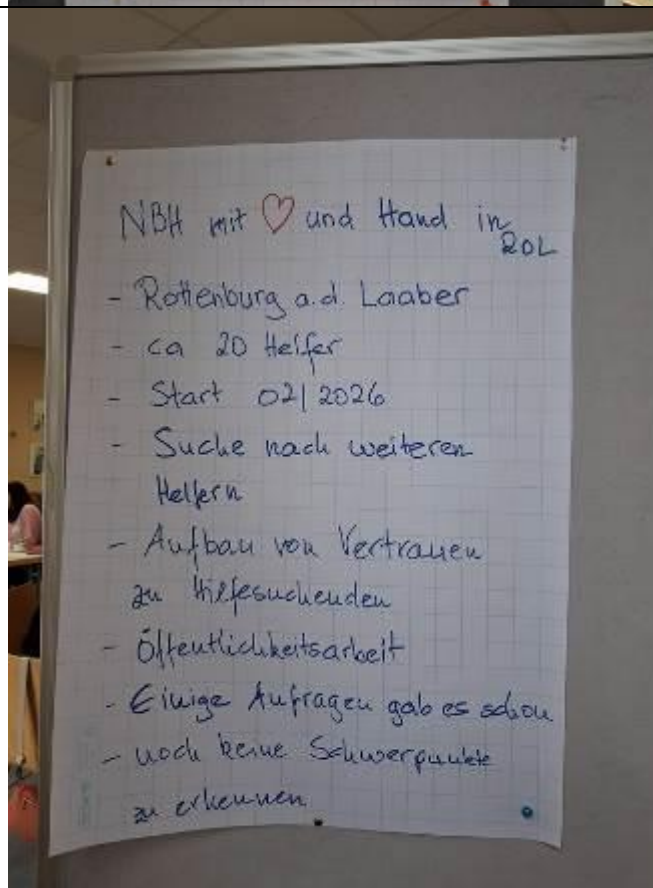 NBH mit ♡ und Hand in
ROL
- Rottenburg a.d. Laaber
- ca 20 Helfer
- Start 02/2026
- Suche nach weiteren
Helfern
- Aufbau von Vertrauen
zu Hilfesuchenden
- Öffentlichkeitsarbeit
- Einige Anfragen gab es schon
- noch keine Schwerpunkte
zu erkennen